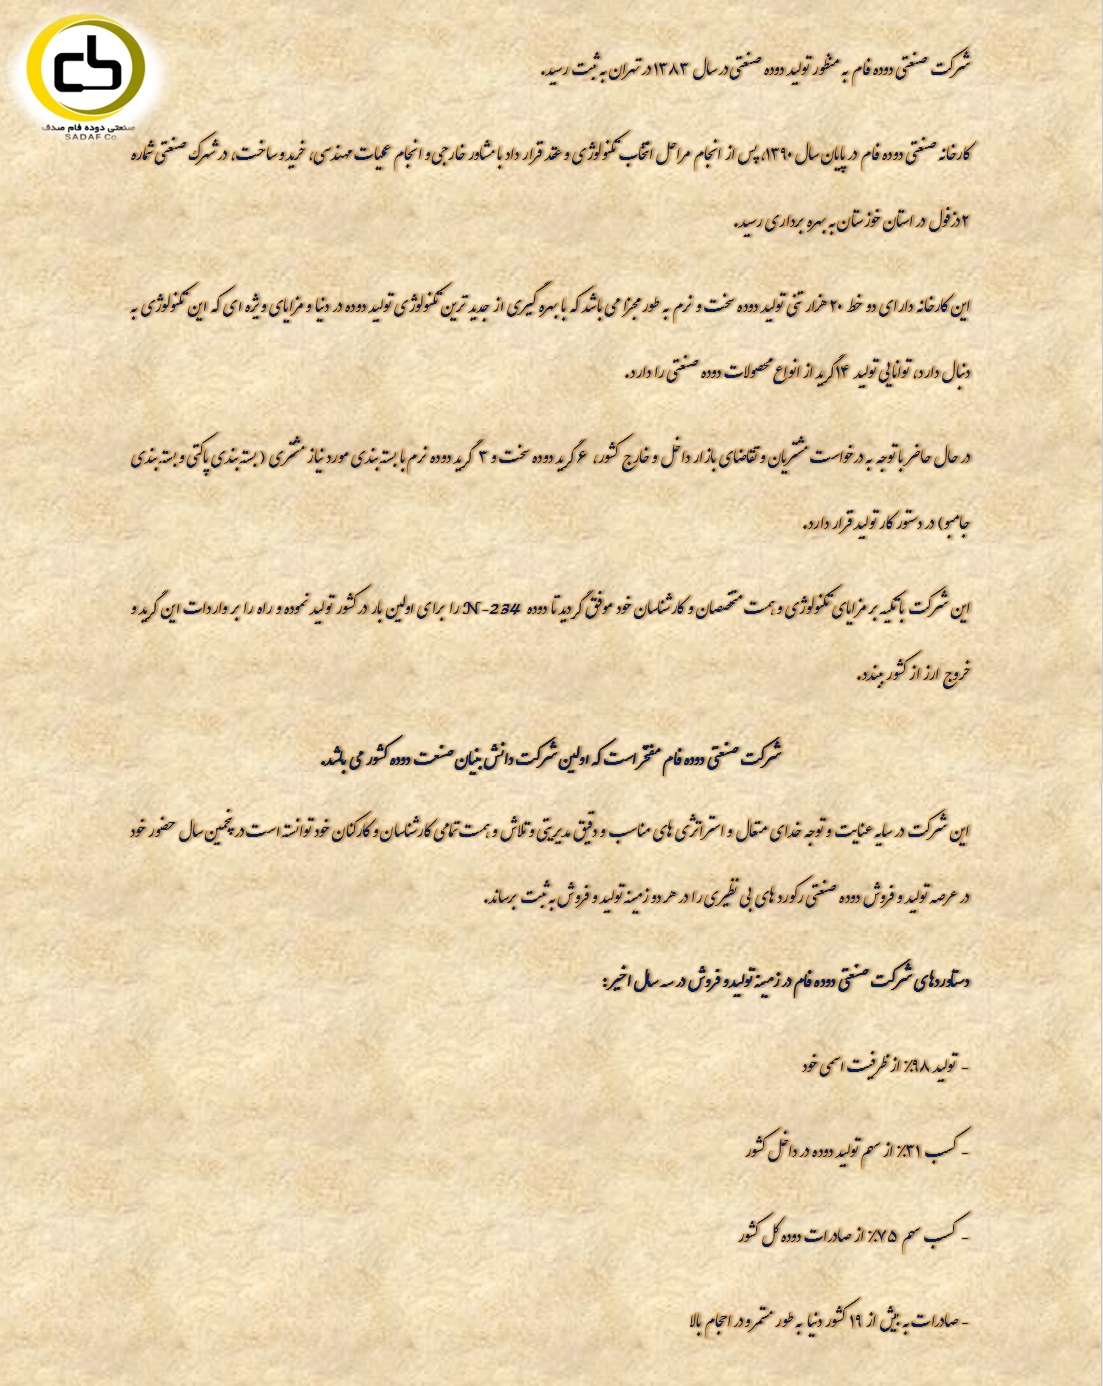 صنعتی دوده فام صدف
SADAF Co
شرکت صنعتی دوده فام به منظور تولید دوده صنعتی در سال ۱۳۸۳ در تهران به ثبت رسید.
کارخانه صنعتی دوده فام در پایان سال ۱۳۹۰، پس از انجام مراحل انتخاب تکنولوژی و عقد قرار داد با مشاور خارجی و انجام عملیات مهندسی، خرید و ساخت، در شهرک صنعتی شماره
۲ دزفول در استان خوزستان به بهره برداری رسید.
این کارخانه دارای دو خط ۲۰ هزار تنی تولید دوده سخت و نرم به طور مجزا می باشد که با بهره گیری از جدید ترین تکنولوژی تولید دوده در دنیا و مزایای ویژه ای که این تکنولوژی به
دنبال دارد، توانایی تولید ۱۴ گرید از انواع محصولات دوده صنعتی را دارد.
در حال حاضر با توجه به درخواست مشتریان و تقاضای بازار داخل و خارج کشور، ۶ گرید دوده سخت و ۳ گرید دوده نرم با بسته بندی مورد نیاز مشتری (بسته بندی پاکتی و بسته بندی
جامبو) در دستور کار تولید قرار دارد.
این شرکت با تکیه بر مزایای تکنولوژی و همت متخصصان و کارشناسان خود موفق گردید تا دوده N-234 را برای اولین بار در کشور تولید نموده و راه را بر واردات این گرید و
خروج ارز از کشور ببندد.
شرکت صنعتی دوده فام مفتخر است که اولین شرکت دانش بنیان صنعت دوده کشور می باشد.
این شرکت در سایه عنایت و توجه خدای متعال و استراتژی های مناسب و دقیق مدیریتی و تلاش و همت تمامی کارشناسان و کارکنان خود توانسته است در پنجمین سال حضور خود
در عرصه تولید و فروش دوده صنعتی رکورد های بی نظیری را در هر دو زمینه تولید و فروش به ثبت برساند.
دستاوردهای شرکت صنعتی دوده فام در زمینه تولید و فروش در سه سال اخیر:
- تولید ۹۸٪ از ظرفیت اسمی خود
- کسب ۳۱٪ از سهم تولید دوده در داخل کشور
- کسب سهم ۷۵٪ از صادرات دوده کل کشور
- صادرات به بیش از ۱۹ کشور دنیا به طور مستمر و در احجام بالا